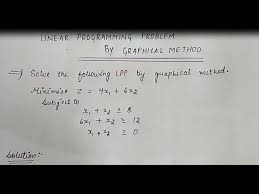 LINEAR PROGRAMMING PROBLEM
By GRAPHICAL METHOD
⇒ Solve the following LPP by graphical method.
Minimise Z = 4x₁ + 6x₂
Subject to
x₁ + x₂ ≥ 8
6x₁ + x₂ ≥ 12
x₁, x₂ ≥ 0
Solution:-